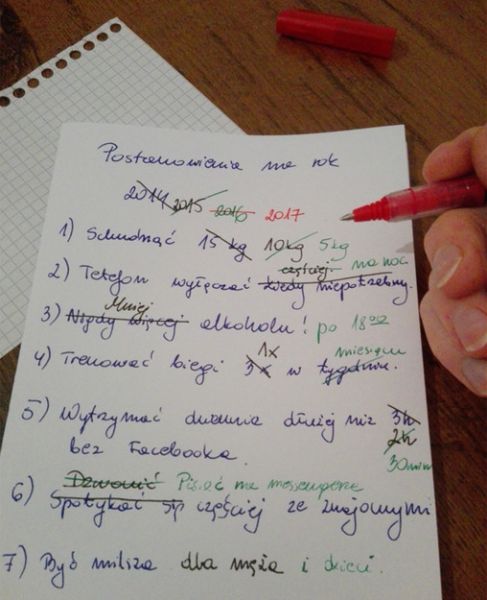 Postanowienia na rok
2014 2015 2016 2017
1) Schudnąć 15 kg 10kg 5kg
częściej na noc
2) Telefon wyłączać kiedy niepotrzebny.
Mniej
3) Nigdy więcej alkoholu! po 18⁰⁰
1x miesiącu
4) Trenować biegi 3x w tygodniu.
5) Wytrzymać dwunia dłużej niż 3h
2h
bez Facebooka.
30min
Dzwonić Pisać na messengerze
6) Spotykać się częściej ze znajomymi
7) Być milsza dla męża i dzieci.